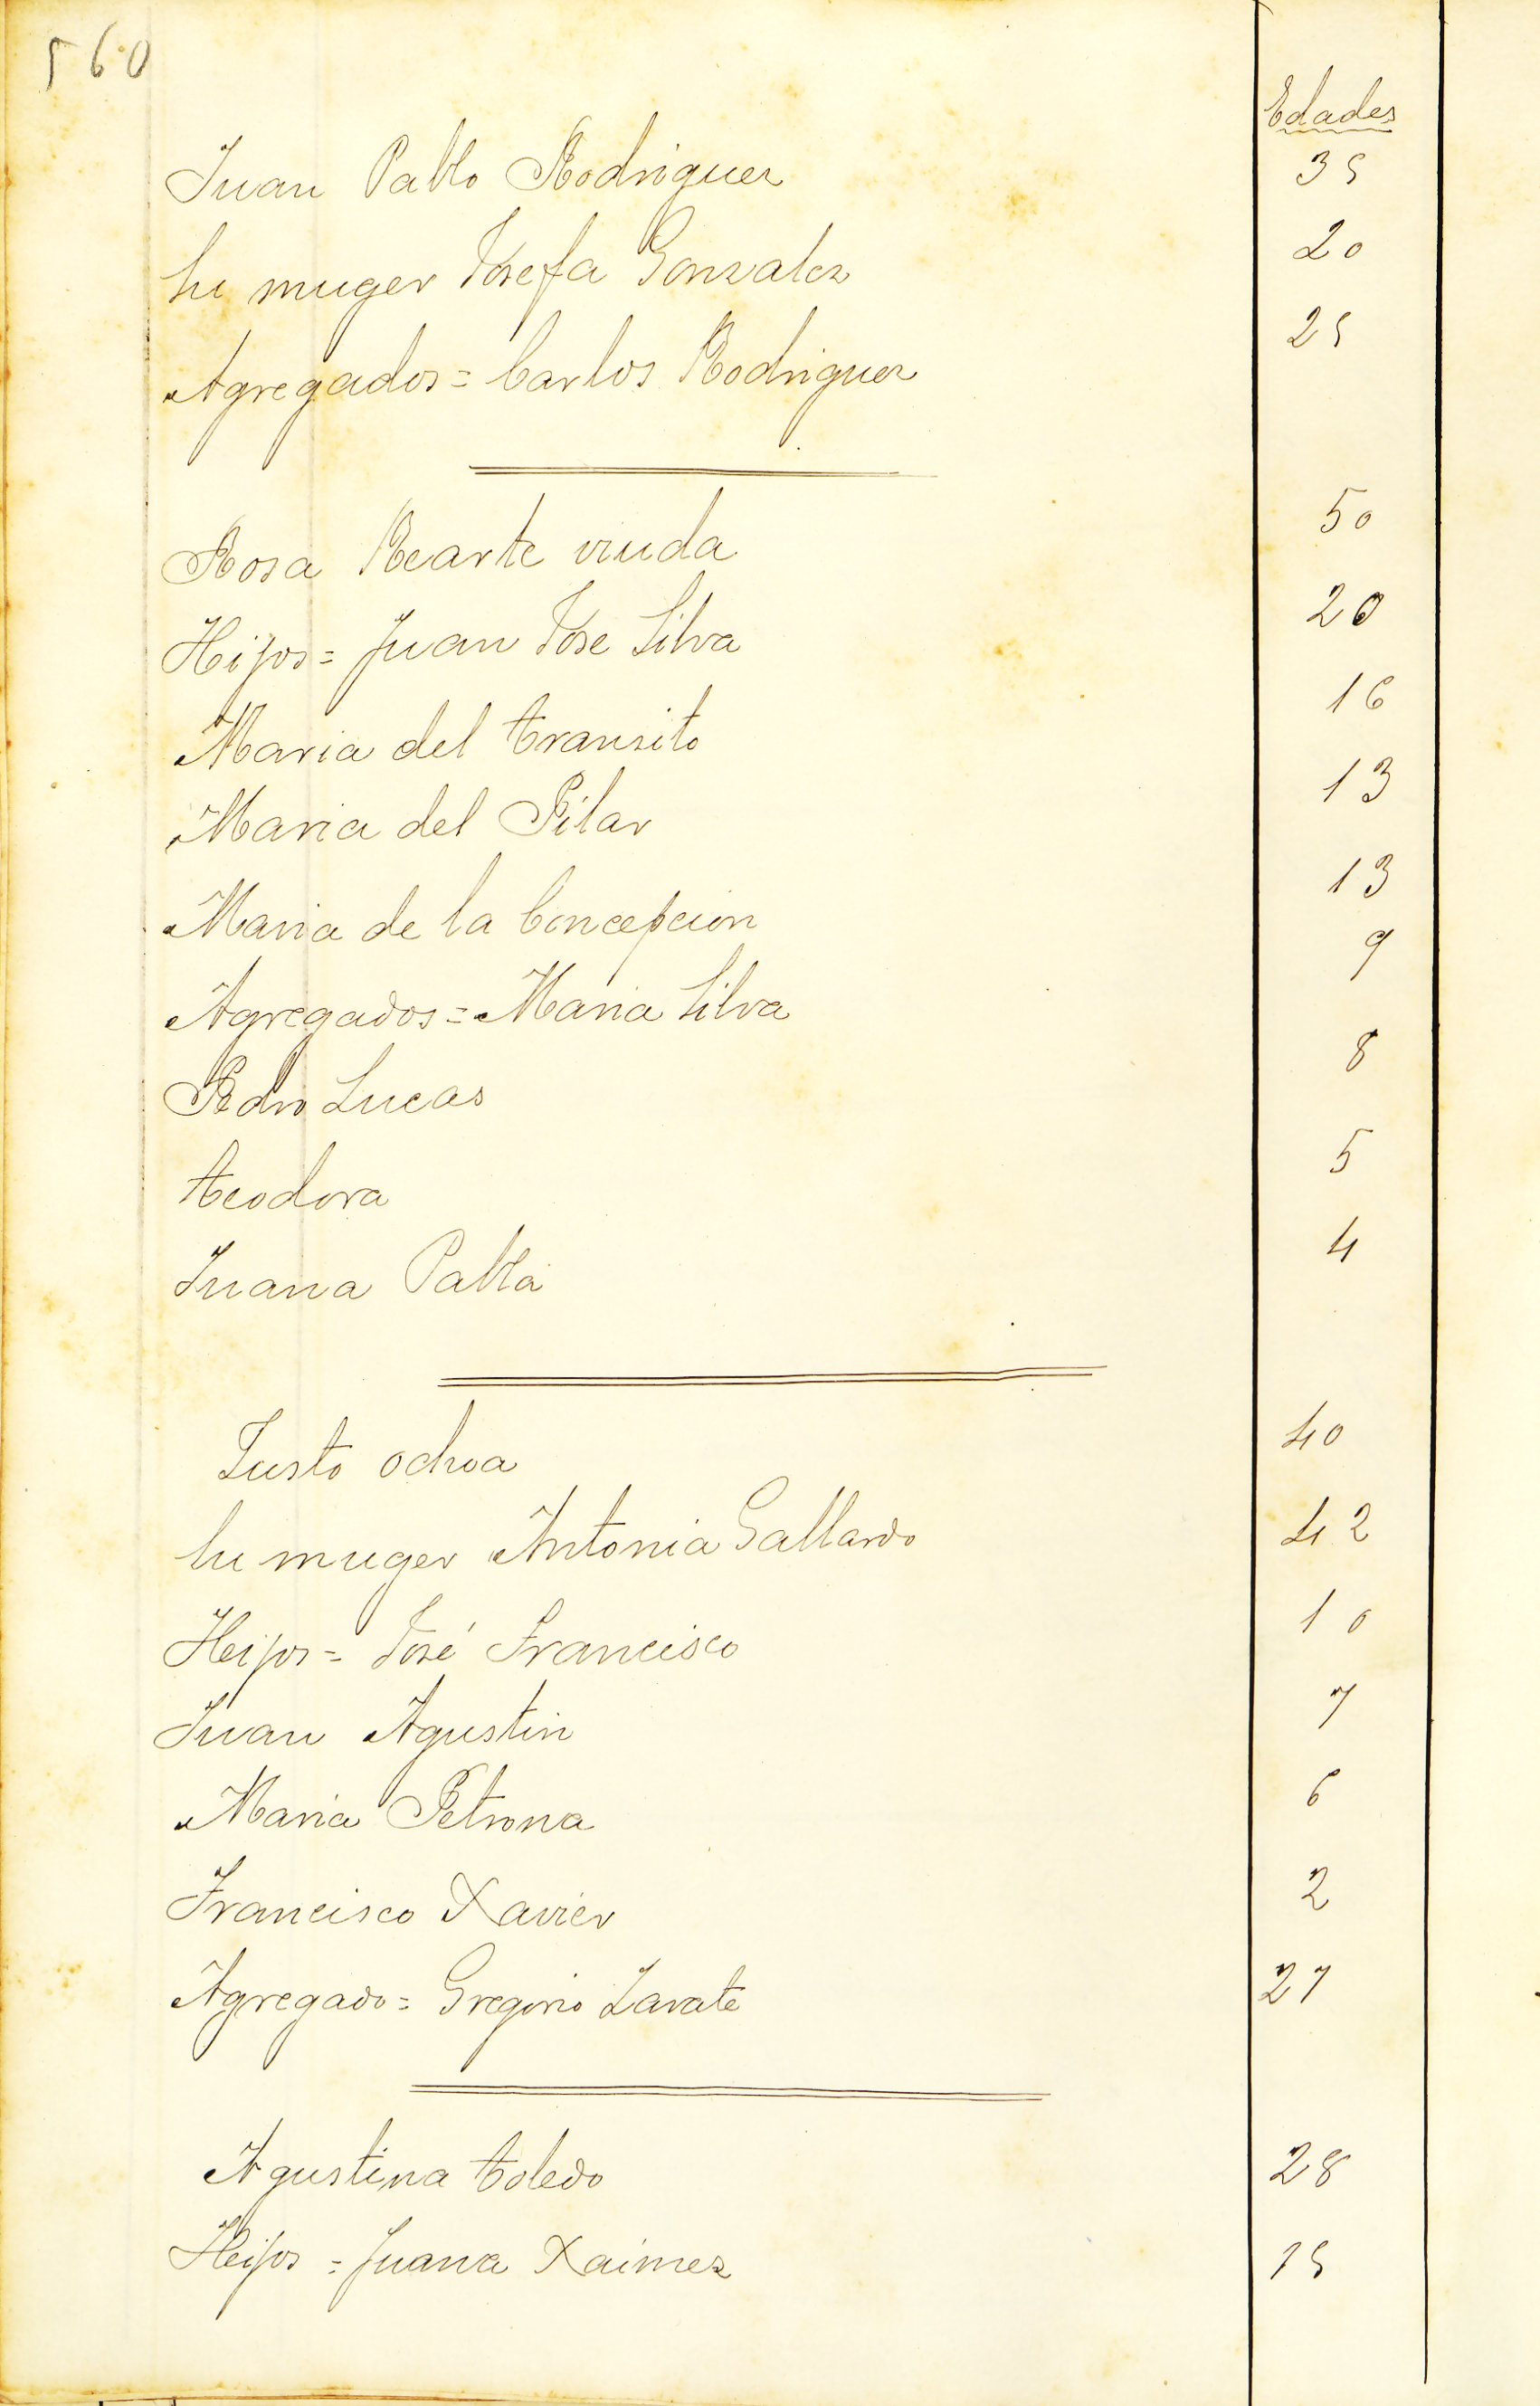 560
Edades
Juan Pablo Rodriguez 35
Su muger Josefa Gonzalez 20
Agregados = Carlos Rodriguez 25
Rosa Rearte viuda 50
Hijos = Juan Jose Silva 20
Maria del transito 16
Maria del Pilar 13
Maria de la Concepcion 13
Agregados = Maria Silva 9
Pedro Lucas 8
teodora 5
Juana Pabla 4
Justo ochoa 40
Su muger Antonia Gallardo 42
Hijos = José Francisco 10
Juan Agustin 7
Maria Petrona 6
Francisco Xavier 2
Agregado = Gregorio Zarate 27
Agustina toledo 28
Hijos = Juana Xaimez 15